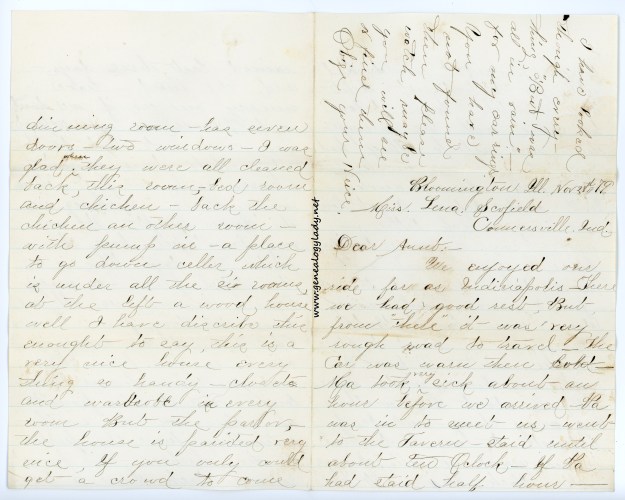 Bloomington Ill Nov 25th 79
Miss. Lena Scofield
Connersville. Ind.
Dear Aunt.
We enjoyed our
ride far as Indianapolis There
we had, good rest, But
from there it was very
rough road to travel — the
Car was warm then Cold —
Ma took very sick about an
hour before we arrived Pa
was in to meet us, went
to the Tavern — staid until
about Oclock — If Pa
had staid half hour —
dinning room — has seven
doors — two windows — I was
glad, when they were all cleaned
back, this room — bed room
and chicken — back the
chicken an other room —
with pump in — a place
to go down celler, which
is under all the six rooms,
at the left a wood, house
well I have discribe this
enought to say, this is a
very nice house every
thing so handy — closets
and wardrobe in every
room But the parlor,
the house is painted very
nice, If you only could
get a crowd to come
I have looked
through every
thing But is was
all in vain
for my ear rings
If you have
not found
them please
watch maybe
you will see
or find them
Oblige your Niece.
www.genealogylady.net